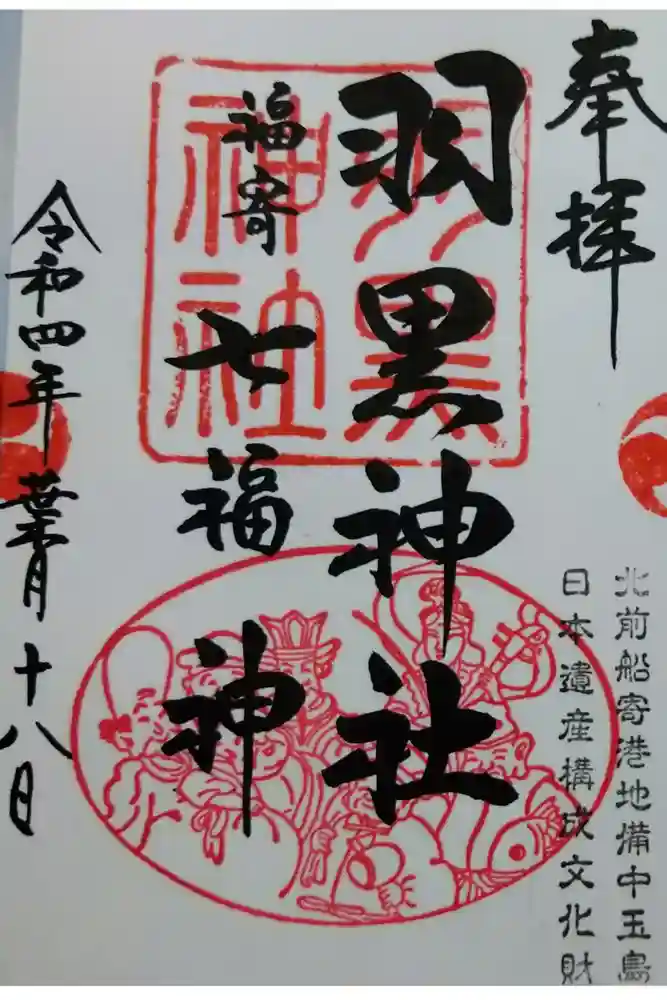 奉拝
北前船寄港地備中玉島
日本遺産構成文化財
羽黒神社
羽黒
神社
福寄
七福神
令和四年葉月十八日